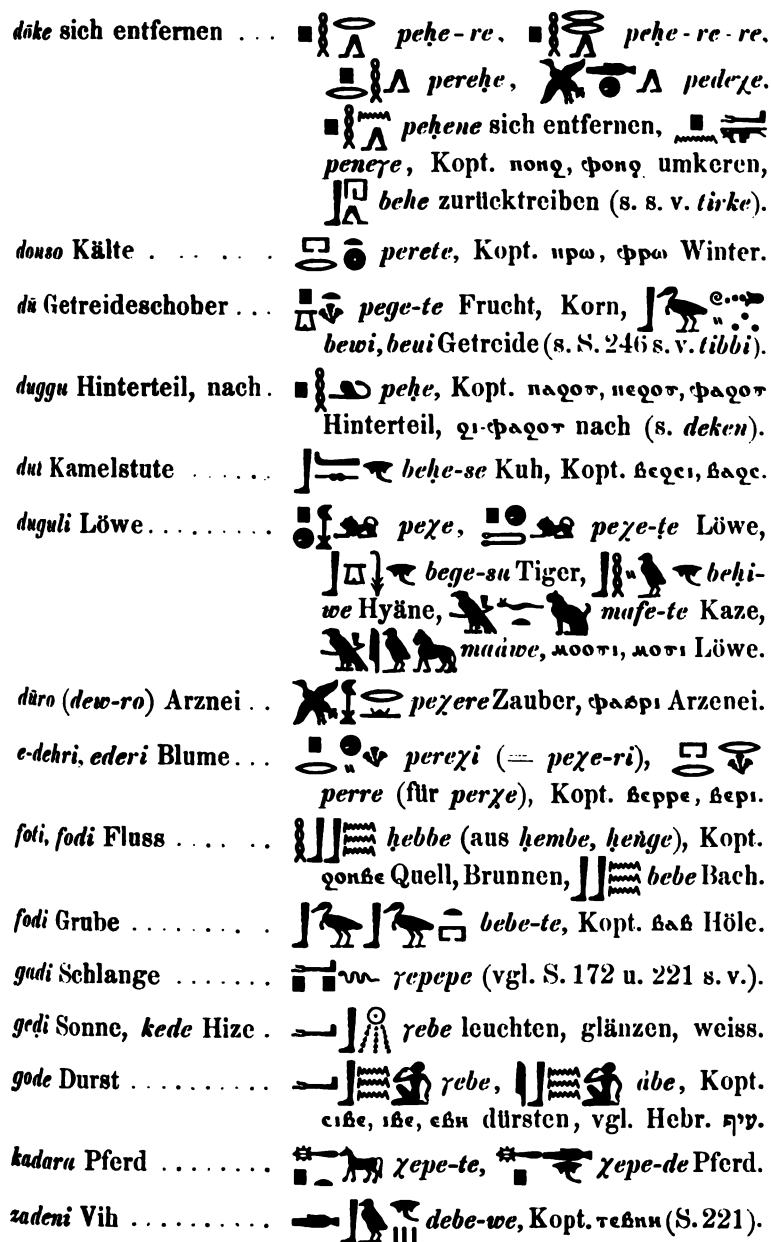 döke sich entfernen . . . 𓊪𓎛𓂋𓂻 peḥe-re, 𓊪𓎛𓂋𓂋𓂻 pehe-re-re,
𓊪𓂋𓎛𓂻 pereḥe, pedeχe.
peḥene sich entfernen,
peneγe, Kopt. ⲡⲟⲛϩ, ⲫⲟⲛϩ umkeren,
behe zurücktreiben (s. s. v. tirke).
donso Kälte . . . . . . perete, Kopt. ⲡⲣⲱ, ⲫⲣⲱ Winter.
dü Getreideschober . . . pege-te Frucht, Korn,
bewi, beui Getreide (s. S. 246 s. v. tibbi).
duggu Hinterteil, nach . peḥe, Kopt. ⲡⲁϩⲟⲩ, ⲡⲉϩⲟⲩ, ⲫⲁϩⲟⲩ
Hinterteil, ϩⲓ-ⲫⲁϩⲟⲩ nach (s. deken).
dut Kamelstute . . . . . . behe-se Kuh, Kopt. ⲃⲉϩⲥⲓ, ⲃⲁϩⲥ.
duguli Löwe . . . . . . . . . peχe, peχe-te Löwe,
bege-su Tiger, behi-
we Hyäne, mafe-te Kaze,
maáwe, ⲙⲟⲟⲩⲓ, ⲙⲟⲩⲓ Löwe.
düro (dew-ro) Arznei . . peχere Zauber, ⲫⲁϧⲣⲓ Arzenei.
e-dehri, ederi Blume . . . pereχi (= peχe-ri),
perre (für perχe), Kopt. ⲃⲉⲣⲣⲉ, ⲃⲉⲣⲓ.
foti, fodi Fluss . . . . . . ḥebbe (aus ḥembe, ḥenġe), Kopt.
ϩⲟⲛⲃⲉ Quell, Brunnen, bebe Bach.
fodi Grube . . . . . . . . . bebe-te, Kopt. ⲃⲏⲃ Höle.
gadi Schlange . . . . . . . γepepe (vgl. S. 172 u. 221 s. v.).
gedi Sonne, kede Hize . γebe leuchten, glänzen, weiss.
gode Durst . . . . . . . . . . γebe, ábe, Kopt.
ⲉⲓⲃⲉ, ⲓⲃⲉ, ⲉⲃⲏ dürsten, vgl. Hebr. עיף.
kadara Pferd . . . . . . . . χepe-te, χepe-de Pferd.
zadeni Vih . . . . . . . . . . debe-we, Kopt. ⲧⲉⲃⲛⲏ (S. 221).